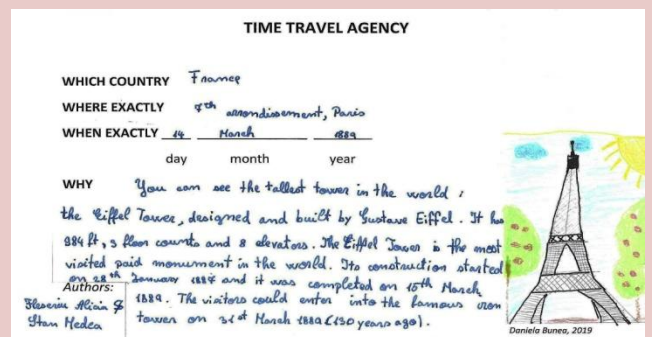 TIME TRAVEL AGENCY
WHICH COUNTRY France
WHERE EXACTLY 7th arrondissement, Paris
WHEN EXACTLY 14 March 1889
day month year
WHY You can see the tallest tower in the world :
the Eiffel Tower, designed and built by Gustave Eiffel. It has
984 ft, 3 floor counts and 8 elevators. The Eiffel Tower is the most
visited paid monument in the world. Its construction started
on 28th January 1887 and it was completed on 15th March
1889. The visitors could enter into the famous iron
tower on 31st March 1889 (130 years ago).
Authors:
Alicia &
Stan Medea
Daniela Bunea, 2019